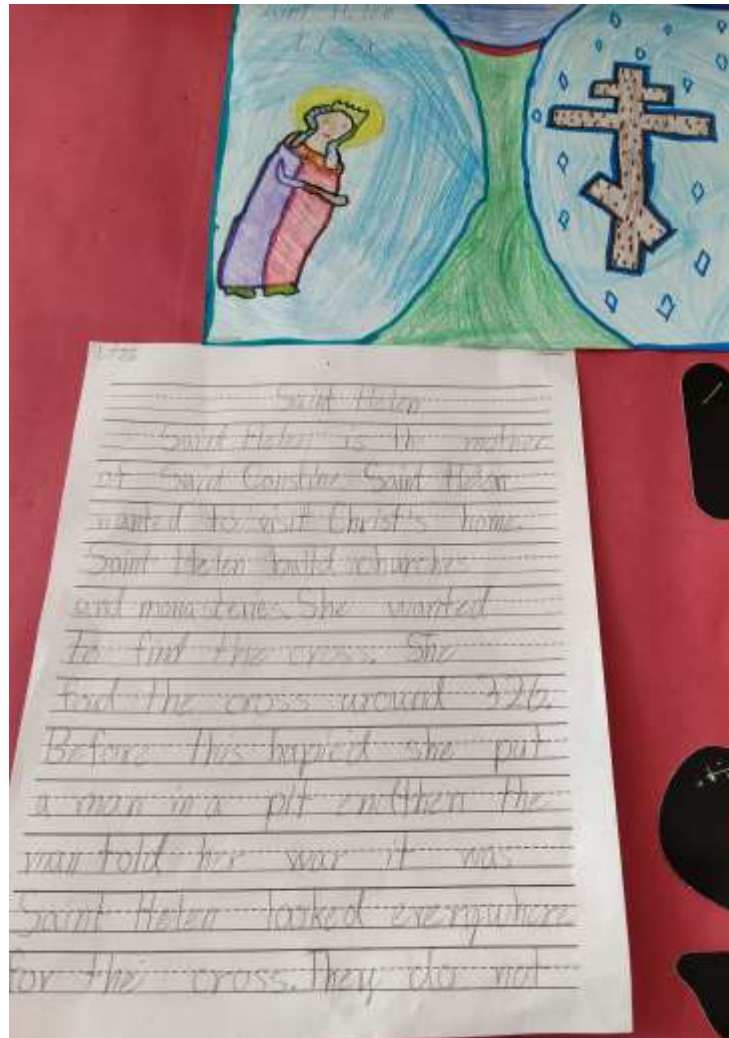 Saint Helen
Saint Helen
Saint Helen is the mother
of Saint Constine Saint Helen
wanted to visit Christ's home.
Saint Helen build churches
and monasteries. She wanted
to find the cross. She
fond the cross around 326.
Before this hapieid she put
a man in a pit and then the
man told her war it was
Saint Helen looked everywhere
for the cross. They do not